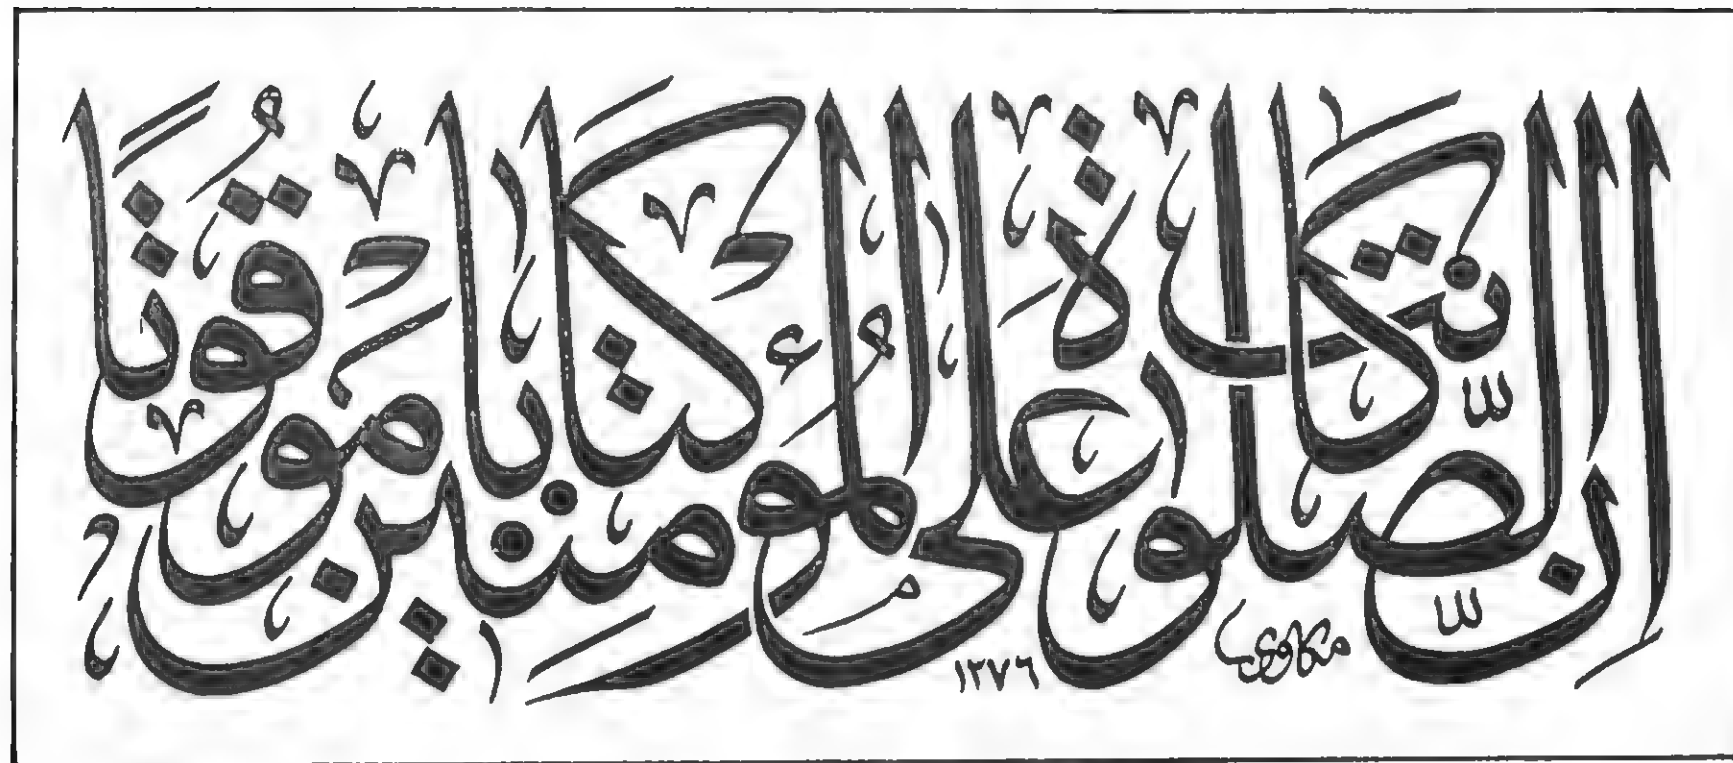 إِنَّ الصَّلَوٰةَ كَانَتْ عَلَى الْمُؤْمِنِينَ كِتَابًا مَوْقُوتًا
مكاوى
١٣٧٦